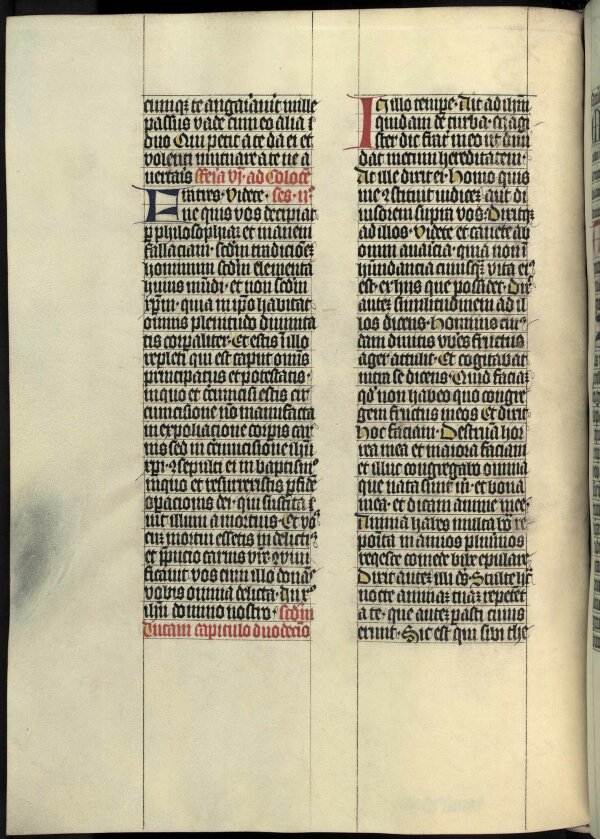 cumq̄ te angaiauit mille
passus vade cum eo alia ī
duo Qui petit a te da ei et
volenti mutuare a te ne a
uertais fferia vj. ad Colocē
Fratres. Videte. ses. ij.
ne quis vos decipiat
p phylosophiaꝫ et inanem
fallaciam. scd̄m tradicōeꝫ
hominum scd̄m elementa
huius mūdi. et non scd̄m
xp̄m. quia in ip̄o habitat
omnis plenitudo diuinita
tis corpaliter. Et estis ī illo
repleti qui est caput om̄is
principatus et potestatis.
in quo et circūcisi estis cir
cumcisione nō manufacta
in expoliacione corpis car
nis sed in circūcisione ih̄u
xp̄i. ꝯsepulti ei in baptism̄
in quo et resurrexistis p fidē
opacionis dei. qui suscita
uit illum a mortuis. Et vo
cū mortui essetis in delictꝭ
et p̄pucio carnis vr̄e. ꝯuiui
ficauit vos cum illo donās
vobis omnia delicta. In x°
ih̄u domino nostro. scd̄m
lucam capitulo duodecīo
In illo tempe. Ait ad ih̄m
quidam de turba. mgi
ster dic fratri meo ut diui
dat mecum hereditatem.
At ille dixit ei. Homo quis
me ꝯstituit iudicē aut di
uisorem supra vos. Dixitqꝫ
ad illos. Videte et cauete ab
omni auaricia. quia non ī
habundancia cuiusqꝫ vita eiꝰ
est. ex hijs que possidet. Dix̄
auteꝫ similitudinem ad il
los dicens. Hominis cuiꝰ
dam diuitis vb̄es fructus
ager attulit. Et cogitabat
intra se dicens. Quid faciaꝫ
qd̄ non habeo quo congre
gem fructus meos Et dixit
Hoc faciam. Destruā hor
rea mea et maiora faciam
et illuc congregabo omnia
que nata sunt m̄. et bona
mea. et dicam anime mee.
Anima habes multa bōa re
posita in annos plurimos
requiesce comede bibe epulare
Dixit auteꝫ illi ds̄. Stulte hac
nocte animaꝫ tuaꝫ repetet
a te. que auteꝫ pasti cuius
erunt. Sic est qui sibi the